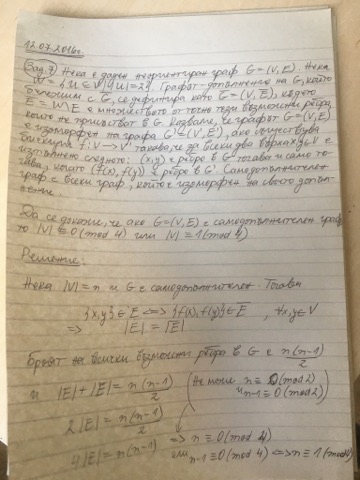 12.07.2016г.
Зад. 7) Нека е даден неориентиран граф G=(V,E). Нека
W = {U ⊆ V | |U|=2}. Графът-допълнение на G, който
бележим с G̅, се дефинира като G̅ = (V, E̅), където
E̅ = W\E е множеството от точно тези възможни ребра,
които не присъстват в G. Казваме, че графът G=(V,E)
е изоморфен на графа G'=(V',E'), ако съществува
биекция f: V→V' такава, че за всеки два върха x,y ∈ V е
изпълнено следното: (x,y) е ребро в G тогава и само то-
гава, когато (f(x), f(y)) е ребро в G'. Самодопълнителен
граф е всеки граф, който е изоморфен на своето допъл-
нение.
Да се докаже, че ако G=(V,E) е самодопълнителен граф,
то |V| ≡ 0 (mod 4) или |V| ≡ 1 (mod 4)
Решение:
Нека |V|=n и G е самодопълнителен. Тогава
{x,y} ∈ E <=> {f(x), f(y)} ∈ E̅ , ∀x,y ∈ V
=> |E| = |E̅|
Броят на всички възможни ребра в G е n(n-1)/2
и |E|+|E̅| = n(n-1)/2
2|E| = n(n-1)/2
4|E| = n(n-1)
(Не може n ≡ 0 (mod 2)
и n-1 ≡ 0 (mod 2))
=> n ≡ 0 (mod 4)
или n-1 ≡ 0 (mod 4) <=> n ≡ 1 (mod 4)